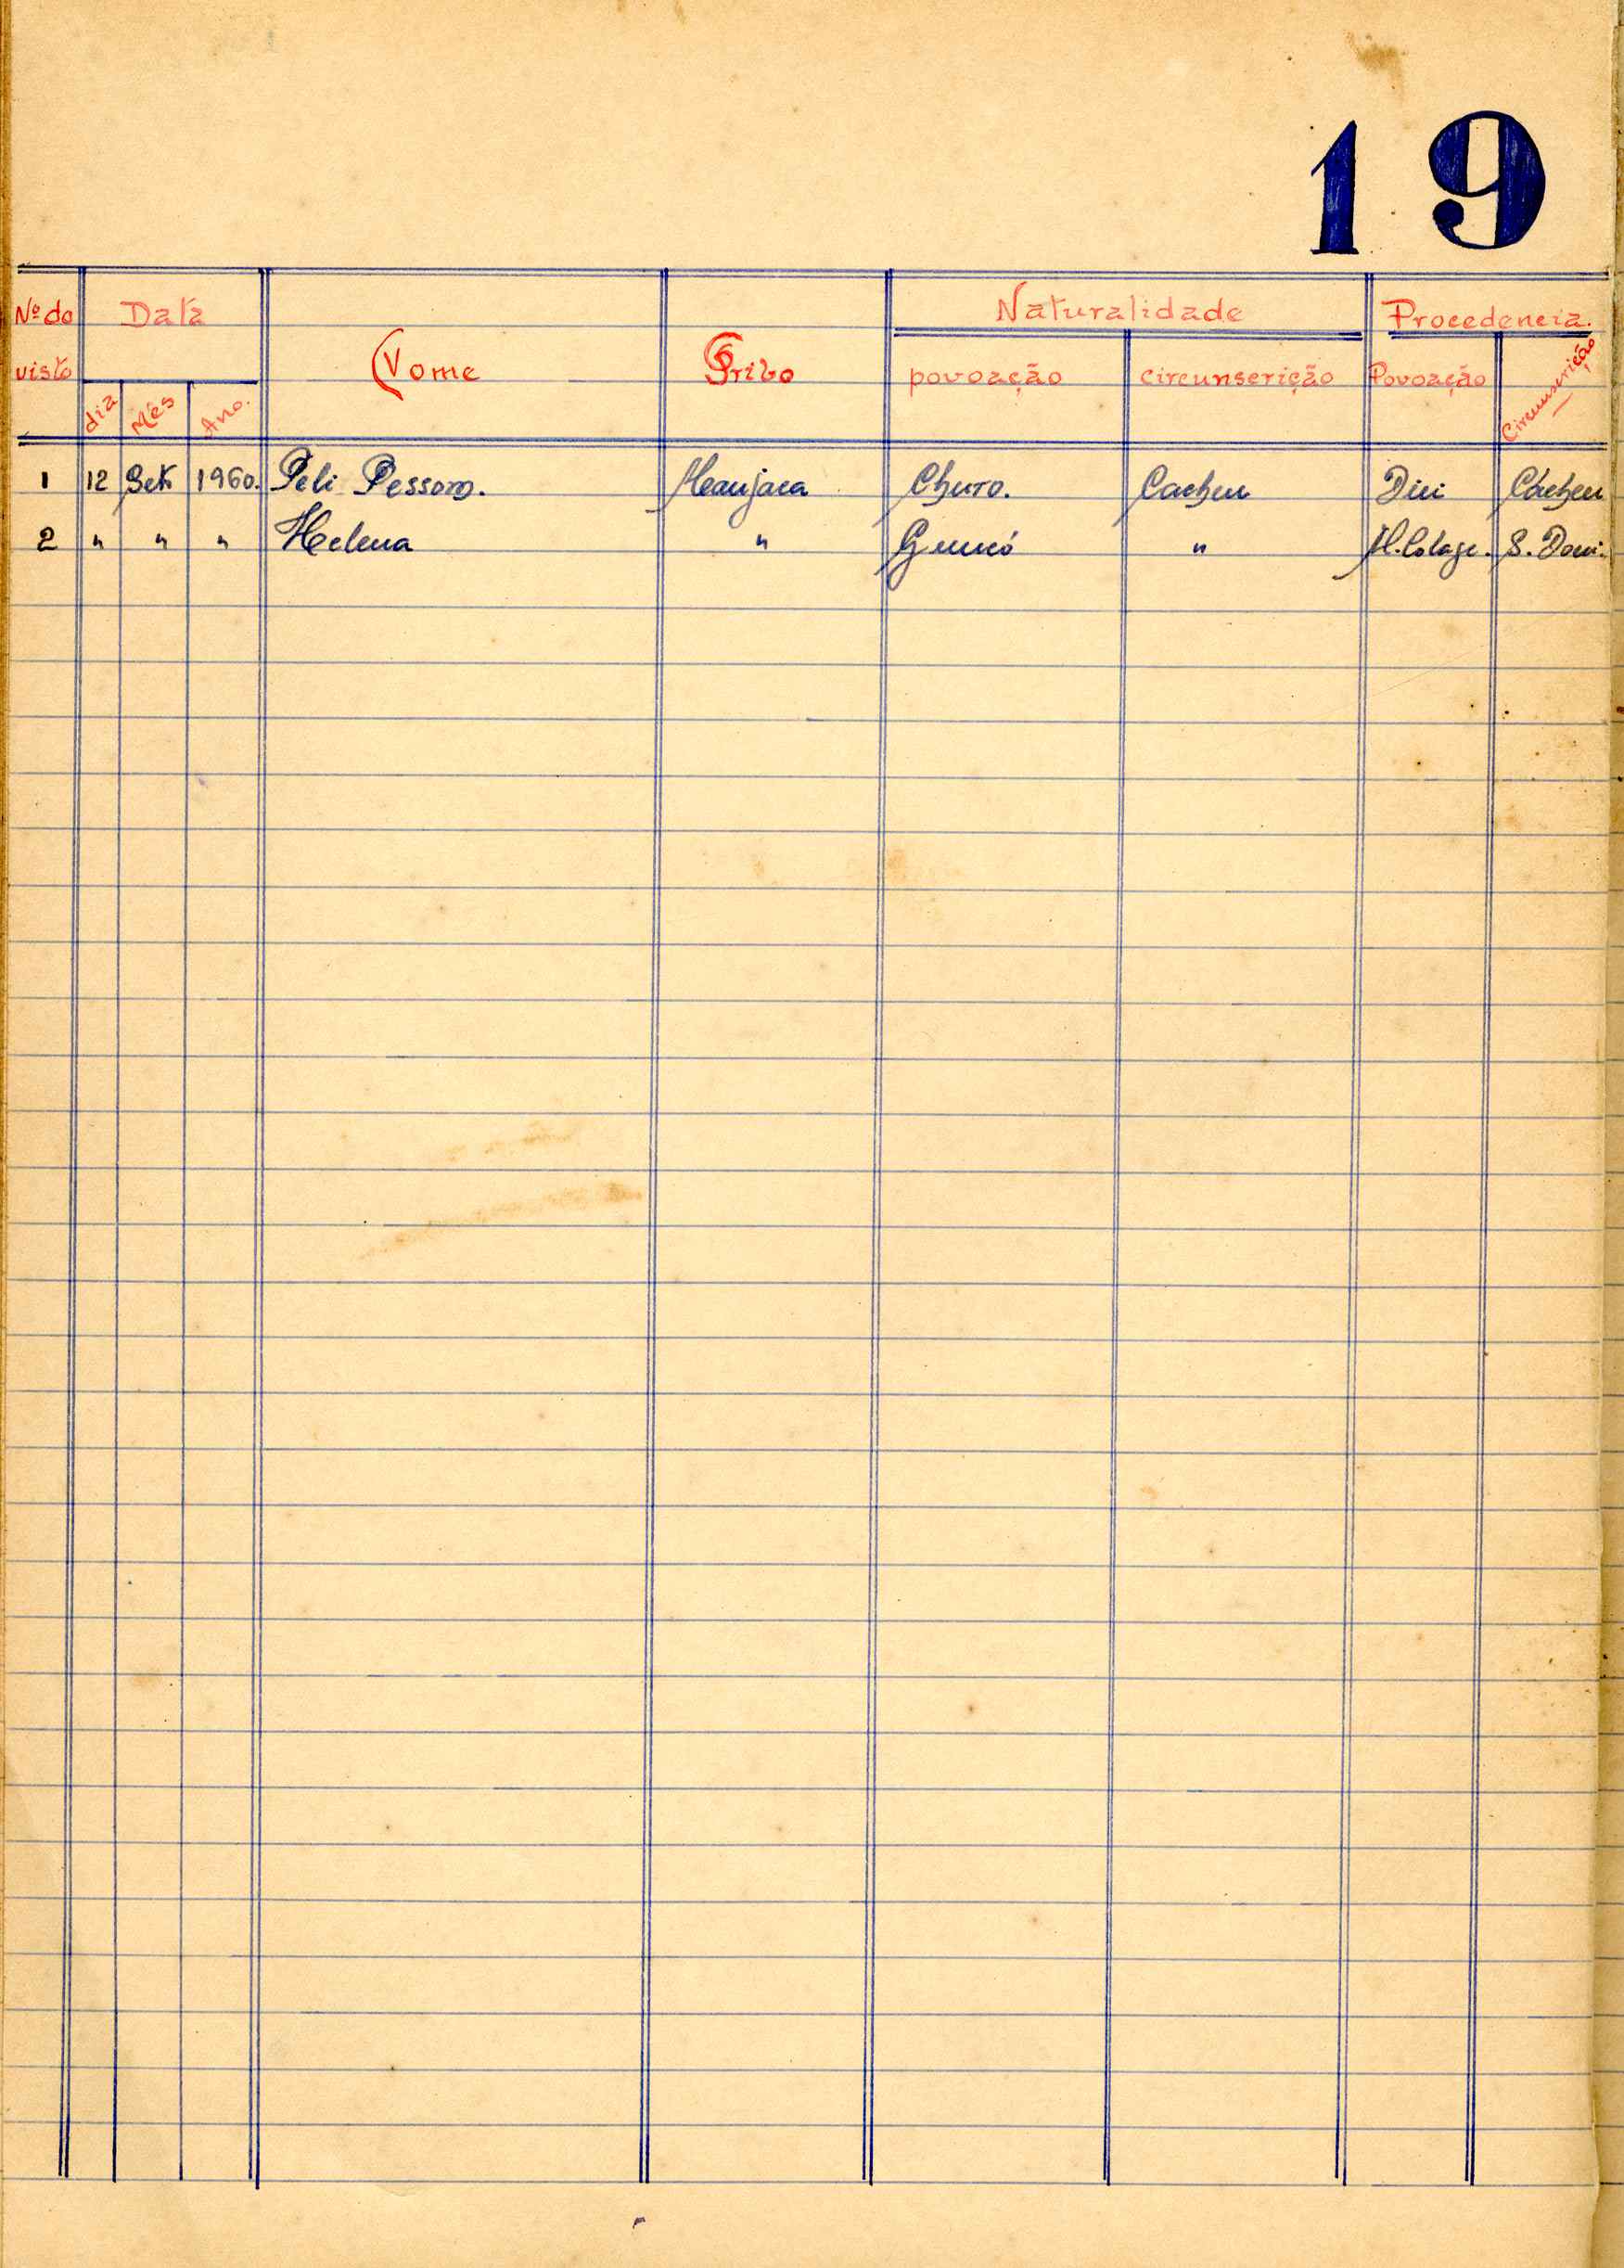 19
Nº do visto Data Nome Tribo Naturalidade Procedencia
dia Mês Ano. povoação circunscrição Povoação Circunscrição
1 12 Set 1960. Peli Pessom. Manjaca Churo. Cacheu Cacheu
2 " " " Helena " " S. Domi.